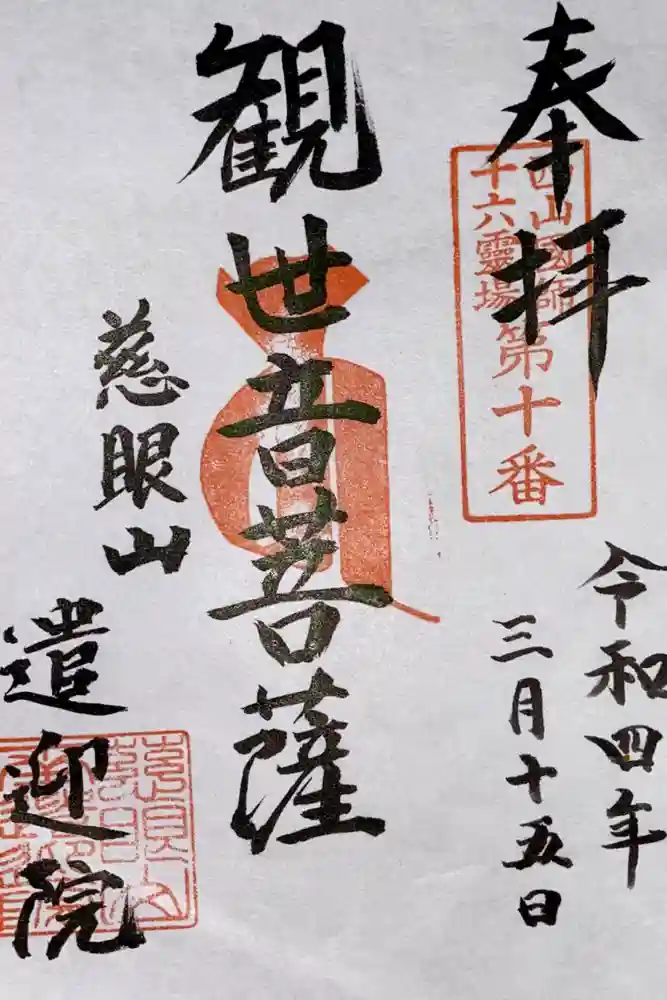 奉拝
西山國師
十六靈場
第十番
令和四年
三月十五日
観世音菩薩
慈眼山
遣迎院